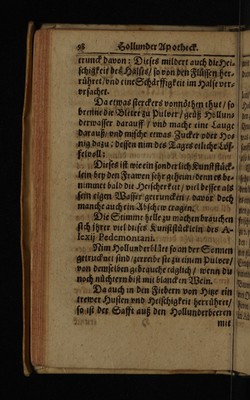 98 Hollunder Apotheck.
trunck davon: Dieses mildert auch die Hei-
schigkeit deß Halses/ so von den Flüssen her-
rühret/und eine Schärffigkeit im Halse ver-
ursachet.
Da etwas sterckers vonnöthen thut/ so
brenne die Bletter zu Pulver/ geuß Hollun-
derwasser darauff/ und mache eine Lauge
darauß/ und mische etwas Zucker oder Ho-
nig dazu: dessen nim des Tages etliche Löf-
fel voll:
Dieses ist wie ein sonderlich Kunststück-
lein bey den Frawen sehr geheim/denn es be-
nimmet bald die Heischerkeit/ viel besser als
sein eigen Wasser getruncken/ davor doch
manche auch ein Abschew tragen.
Die Stimme helle zu machen brauchen
sich ihrer viel dieses Kunststücklein des A-
lexij Pedemontani.
Nim Hollunderblüt so an der Sonnen
getrucknet sind/zerreibe sie zu einem Pulver/
von demselben gebrauche täglich/ wenn du
noch nüchtern bist mit blancken Wein.
Da auch in den Fiebern von Hitze ein
trewer Husten und Heischigkeit herrühret/
so ist der Safft auß den Hollunderbeeren
mit